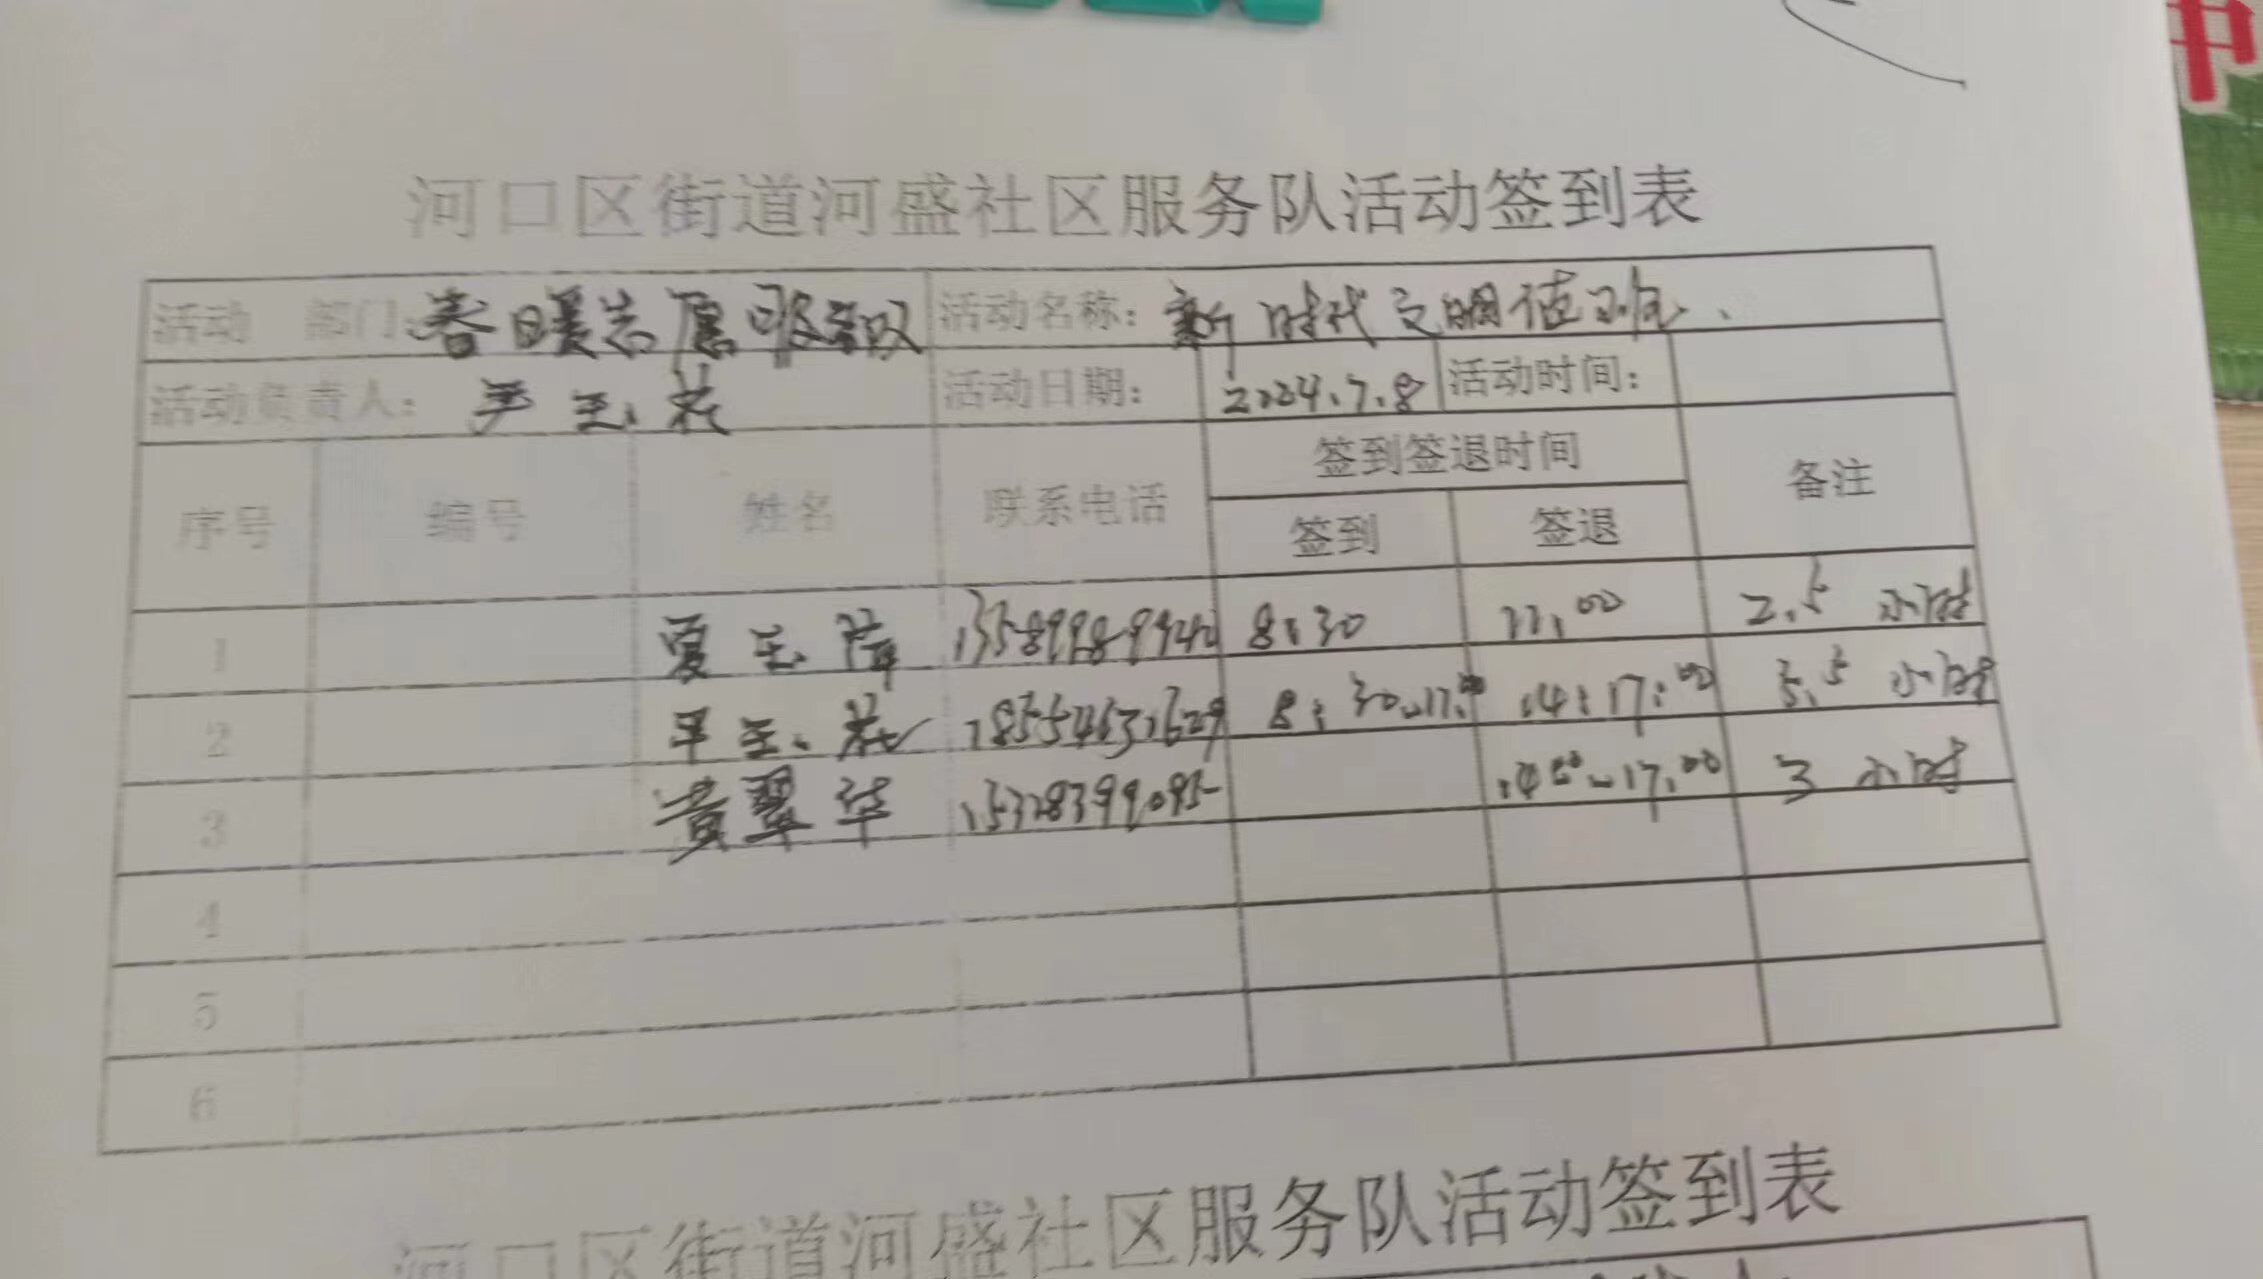 河口区街道河盛社区服务队活动签到表
活动 部门: 春暖志愿服务队 活动名称: 新时代文明值班、
活动负责人: 尹玉花 活动日期: 2024.7.8 活动时间:
序号 编号 姓名 联系电话 签到签退时间 备注
签到 签退
1 夏玉萍 13589989940 8:30 11:00 2.5 小时
2 尹玉花 8:30 14:17:00 5.5 小时
3 黄翠华 15328399095 14:00~17:00 3 小时
4
5
6
河口区街道河盛社区服务队活动签到表